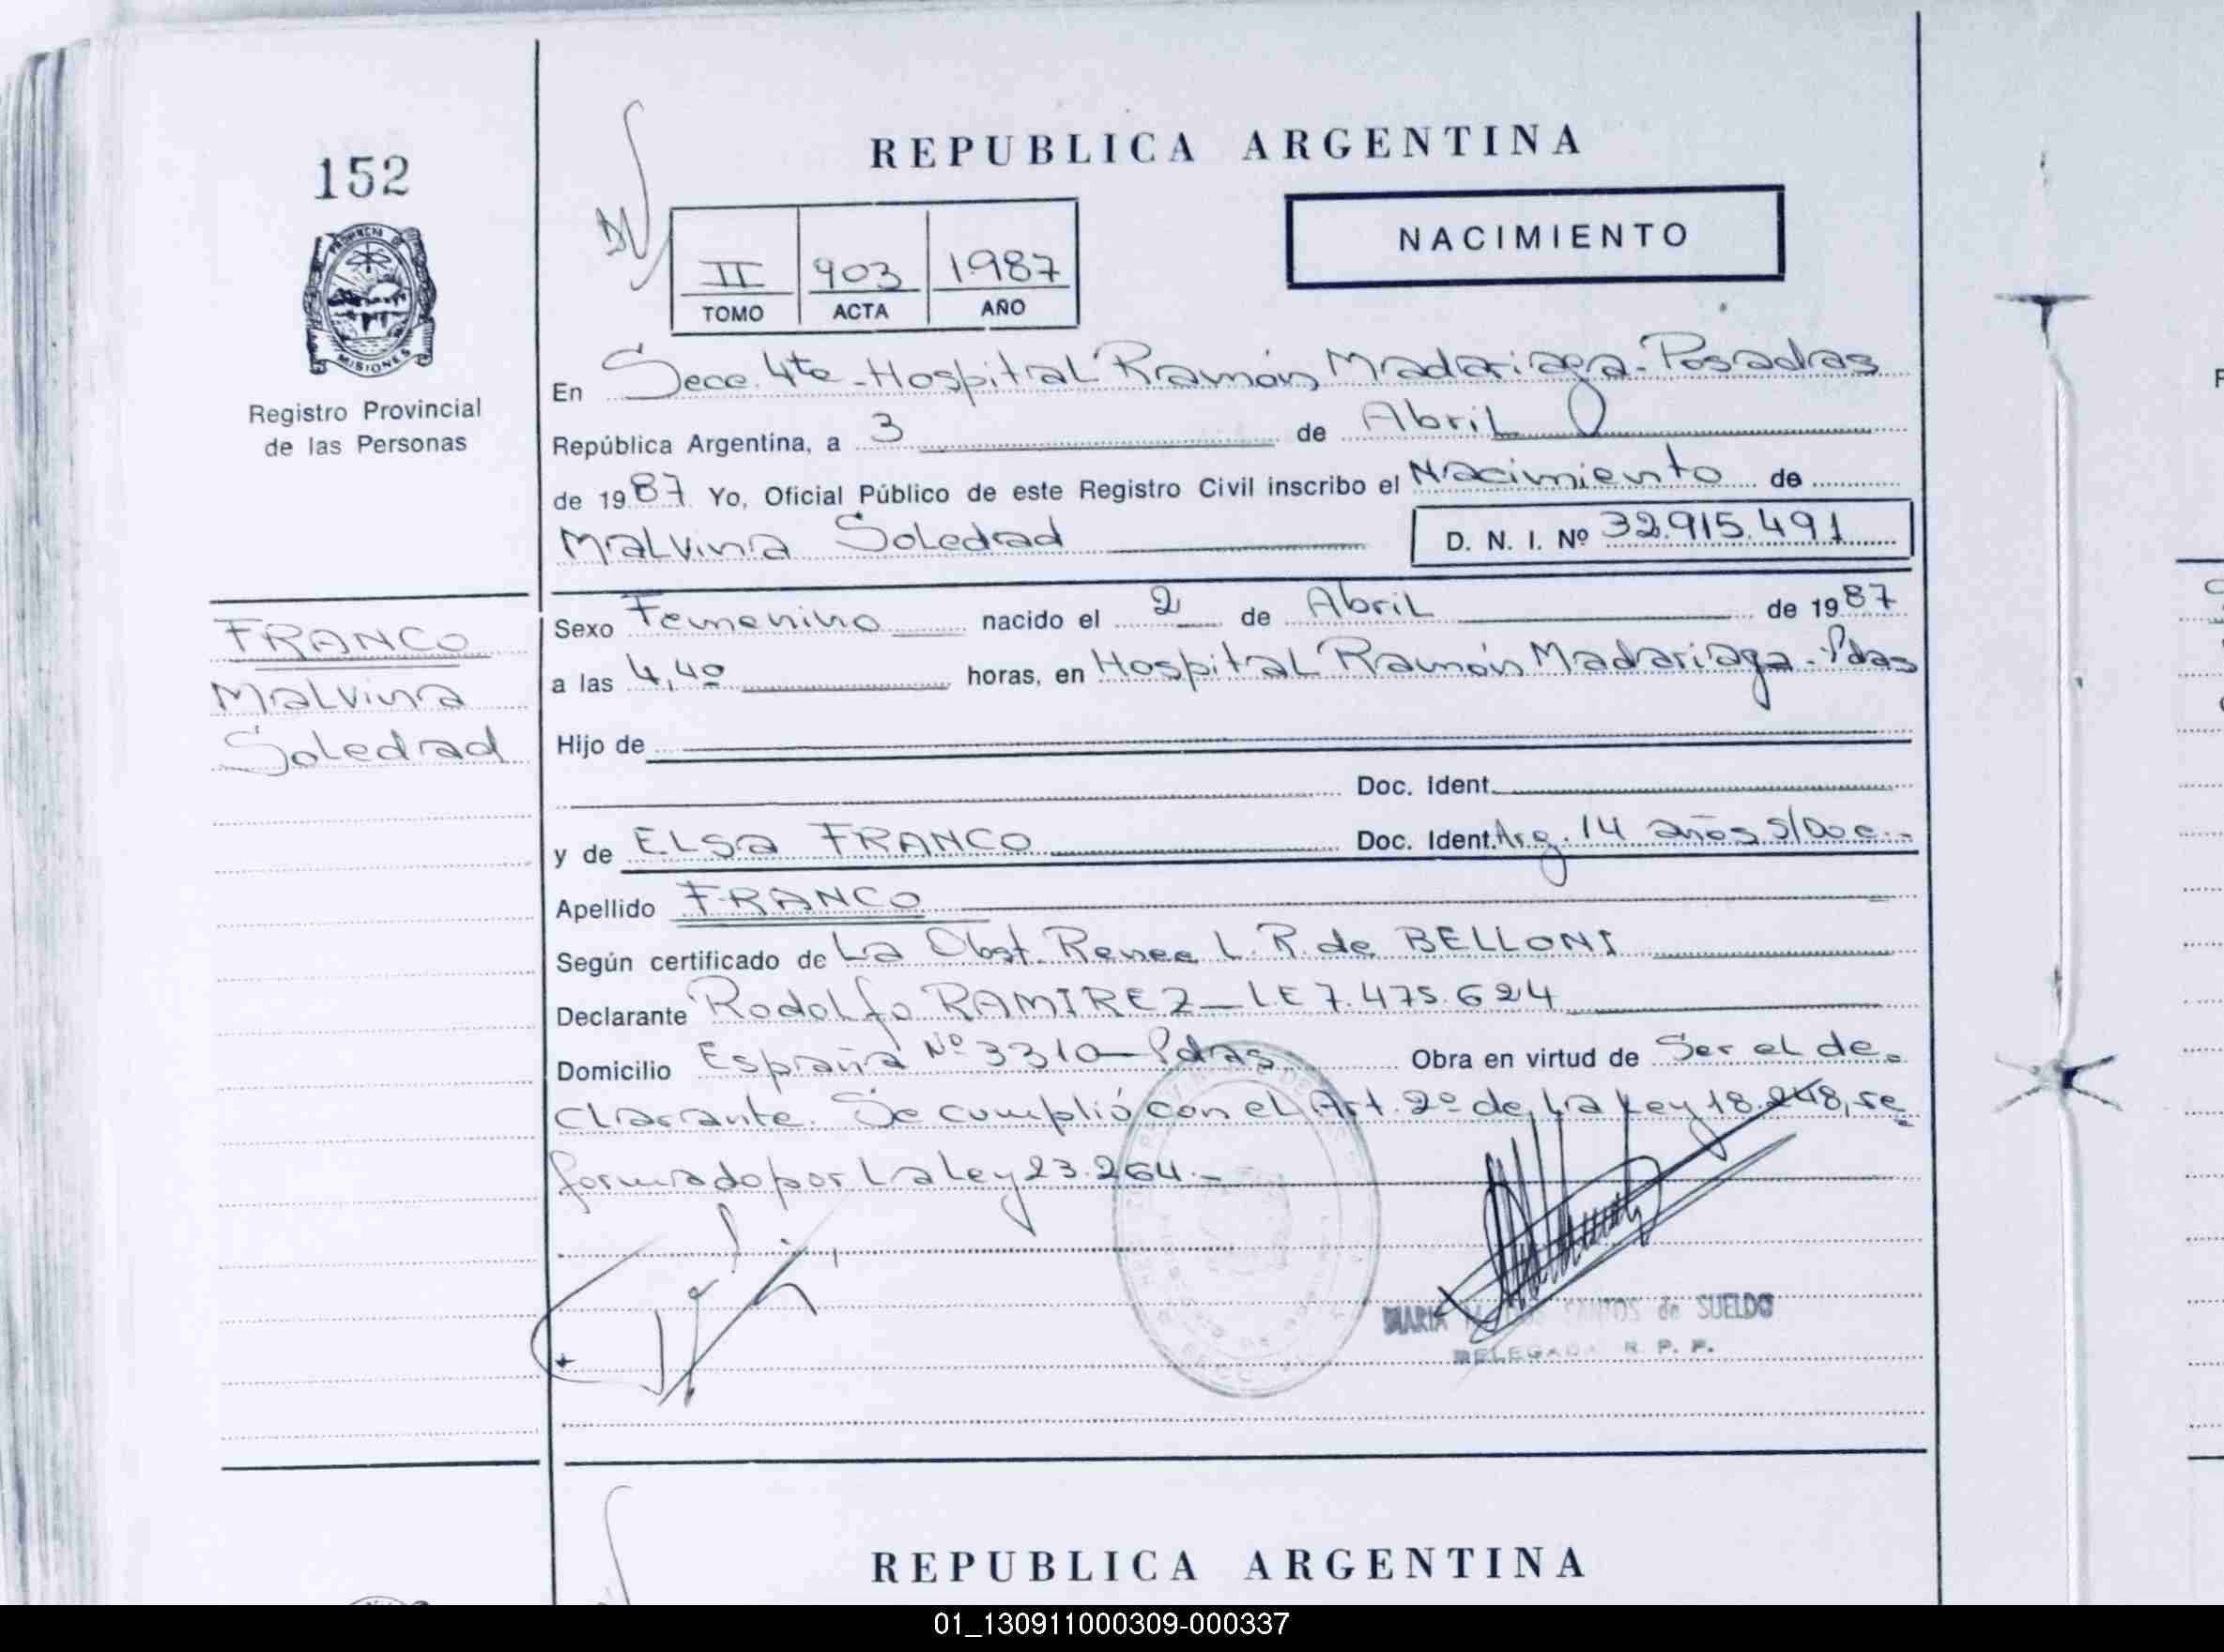 152
PROVINCIA DE
MISIONES
Registro Provincial
de las Personas
FRANCO
Malvina
Soledad
REPUBLICA ARGENTINA
NACIMIENTO
II 903 1987
TOMO ACTA AÑO
En Secc. 4ta - Hospital Ramón Madariaga - Posadas
República Argentina, a 3 de Abril
de 1987 Yo, Oficial Público de este Registro Civil inscribo el Nacimiento de
Malvina Soledad D. N. I. Nº 32.915.491
Sexo Femenino nacido el 2 de Abril de 1987
a las 4,40 horas, en Hospital Ramón Madariaga - Pdas
Hijo de
Doc. Ident.
y de ELSA FRANCO Doc. Ident. Arg. 14 años s/Doc.-
Apellido FRANCO
Según certificado de La Obst. Renee L. R. de BELLONI
Declarante Rodolfo RAMIREZ - L.E 7.475.624
Domicilio España Nº 3310 - Pdas Obra en virtud de Ser el de-
clarante. Se cumplió con el Art. 2º de la Ley 18.248, re
formado por La Ley 23.264.-
MARIA SANTOS de SUELDO
DELEGADA R. P. P.
REPUBLICA ARGENTINA
01_130911000309-000337